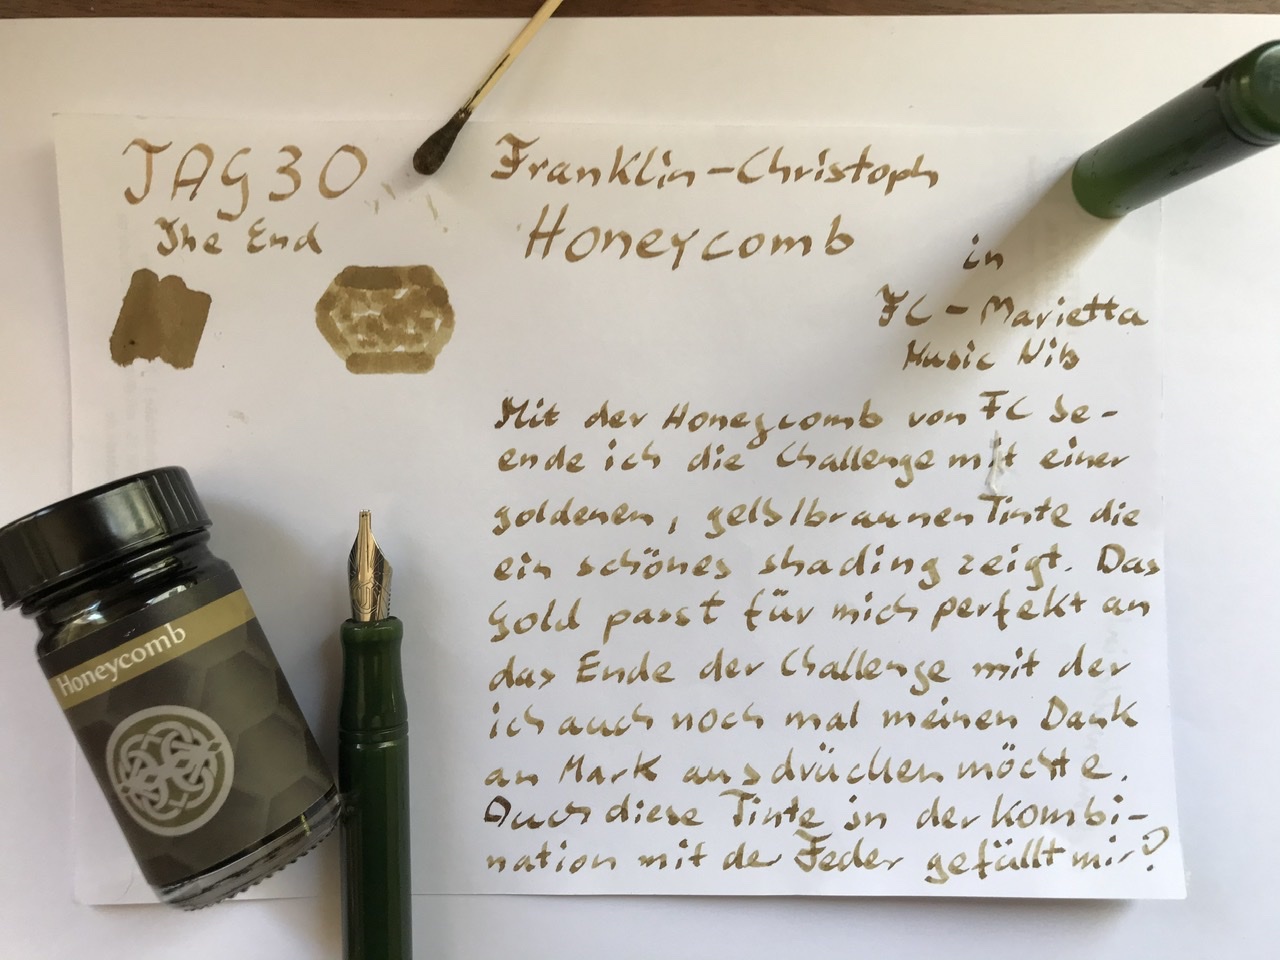 TAG 30
The End
Franklin-Christoph
Honeycomb
in
FC-Marietta
Music Nib
Mit der Honeycomb von FC be-
ende ich die Challenge mit einer
goldenen, gelblbraunen Tinte die
ein schönes shading zeigt. Das
Gold passt für mich perfekt an
das Ende der Challenge mit der
ich auch noch mal meinen Dank
an Mark ausdrücken möchte.
Auch diese Tinte in der Kombi-
nation mit der Feder gefällt mir!
Honeycomb